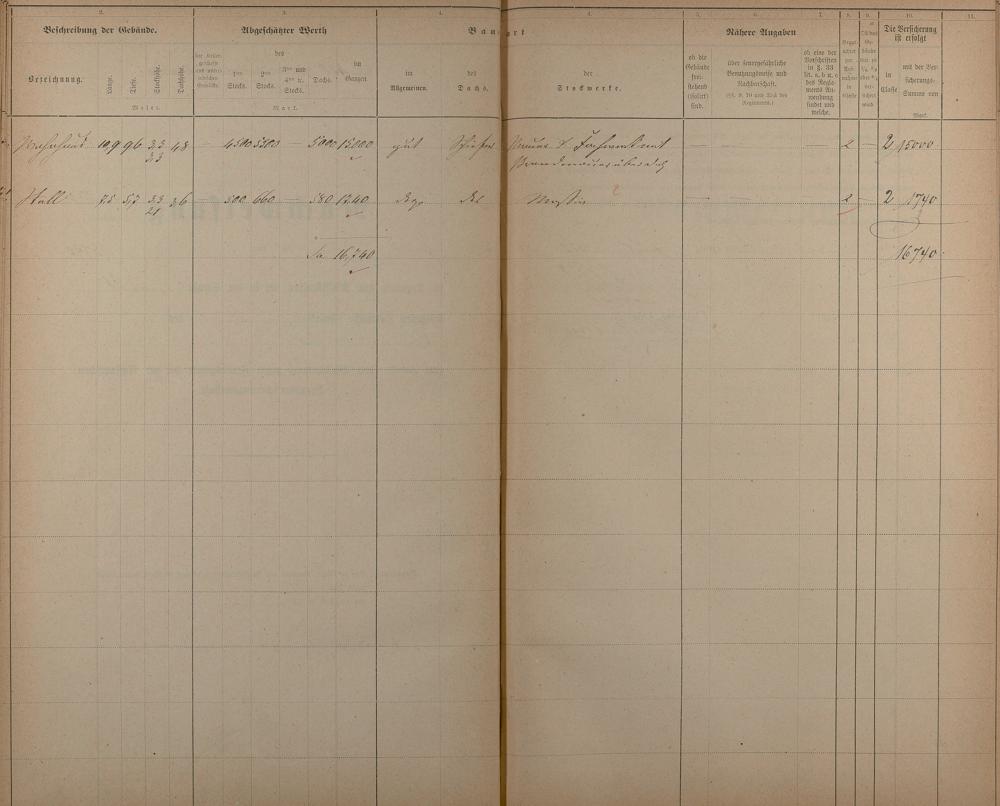 2. 3. 4. 4. 5. 6. 7. 8. 9. 10. 11.
Beschreibung der Gebäude. Abgeschätzter Werth Bauart Nähere Angaben Die Versicherung ist erfolgt
Bezeichnung. Länge. Tiefe. Stockhöhe. Dachhöhe.
Meter.
des
1ten Stocks. 2ten Stocks. 3ten und 4ten u. Stocks. Dachs. im Ganzen
Mark.
im Allgemeinen. des Dachs. der Stockwerke.
ob die Gebäude freistehend (isolirt) sind.
über feuergefährliche Benutzungsweise und Nachbarschaft.
ob eine der Vorschriften in §. 33 lit. a, b u. c des Reglements Anwendung findet und welche.
in Classe
mit der Versicherungs-Summe von
Mark.
Wohnhaus 10,9 9,6 3,3 4,8 — 4500 5500 — 5000 15000 gut Schiefer Mauer & Fachwand mit — — — 2 — 2 15000
3,3
Stall 7,5 5,7 3,3 3,6 — 500 660 — 580 1740 dgl. dgl. Massiv — — — 2 — 2 1740
21
Sa 16,740 16740